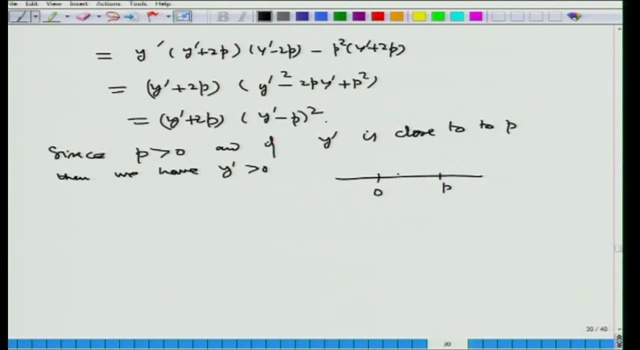 File Edit View Insert Actions Tools Help
= y' (y'+2p) (y'-2p) - p²(y'+2p)
= (y'+2p) (y'² - 2py' + p²)
= (y'+2p) (y'-p)².
Since p>0 and if y' is close to to p
then we have y' >0
0 p
30 / 40
30